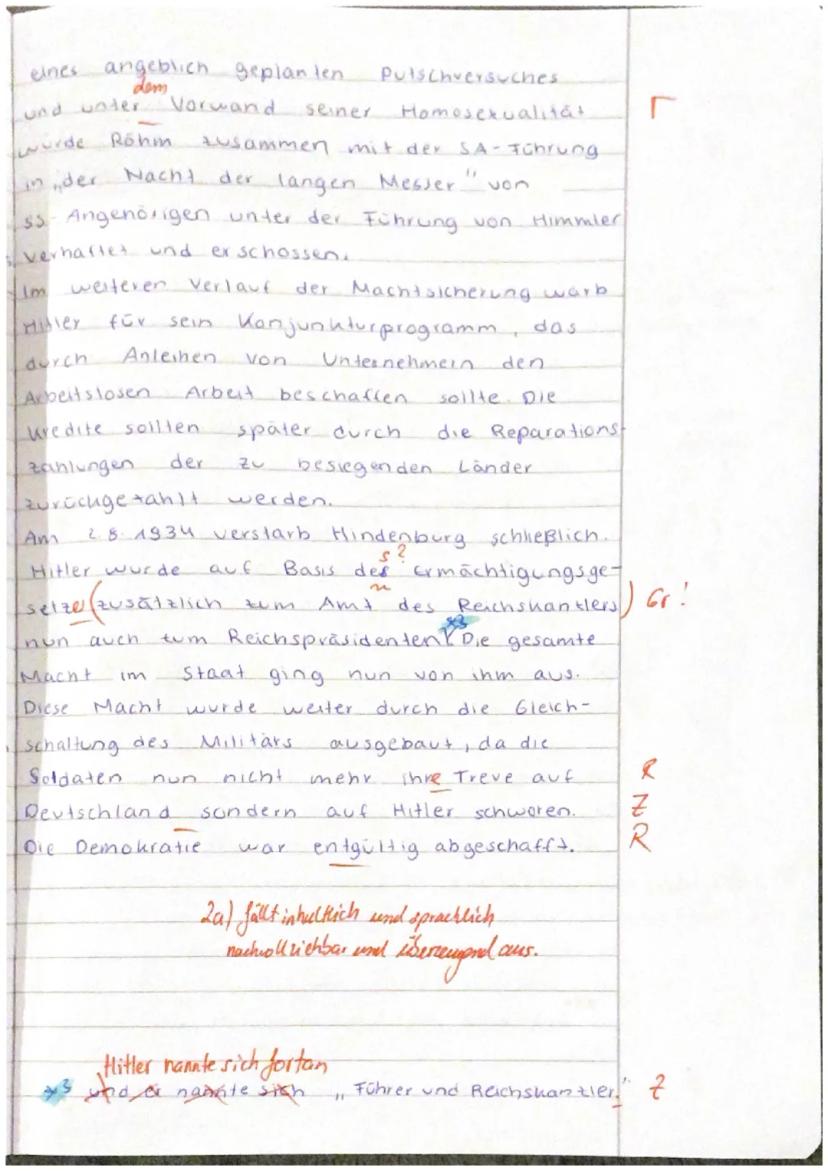 eines angeblich geplanten Putschversuches
dem
und unter Vorwand seiner Homosexualität Γ
wurde Röhm zusammen mit der SA-Führung
in „der Nacht der langen Messer" von
SS-Angehörigen unter der Führung von Himmler
verhaftet und erschossen.
Im weiteren Verlauf der Machtsicherung warb
Hitler für sein Konjunkturprogramm, das
durch Anleihen von Unternehmern den
Arbeitslosen Arbeit beschaffen sollte. Die
Kredite sollten später durch die Reparations-
zahlungen der zu besiegenden Länder
zurückgezahlt werden.
Am 2.8.1934 verstarb Hindenburg schließlich.
s?
Hitler wurde auf Basis des Ermächtigungsge-
setzes (zusätzlich zum Amt des Reichskanzlers) Gr!
nun auch zum Reichspräsidenten. *3 Die gesamte
Macht im Staat ging nun von ihm aus.
Diese Macht wurde weiter durch die Gleich-
schaltung des Militärs ausgebaut, da die
Soldaten nun nicht mehr ihre Treue auf R
Deutschland sondern auf Hitler schworen. Z
Die Demokratie war entgültig abgeschafft. R
2a) fällt inhaltlich und sprachlich
nachvollziehbar und überzeugend aus.
Hitler nannte sich fortan
*3 und er nannte sich „Führer und Reichskanzler." Z